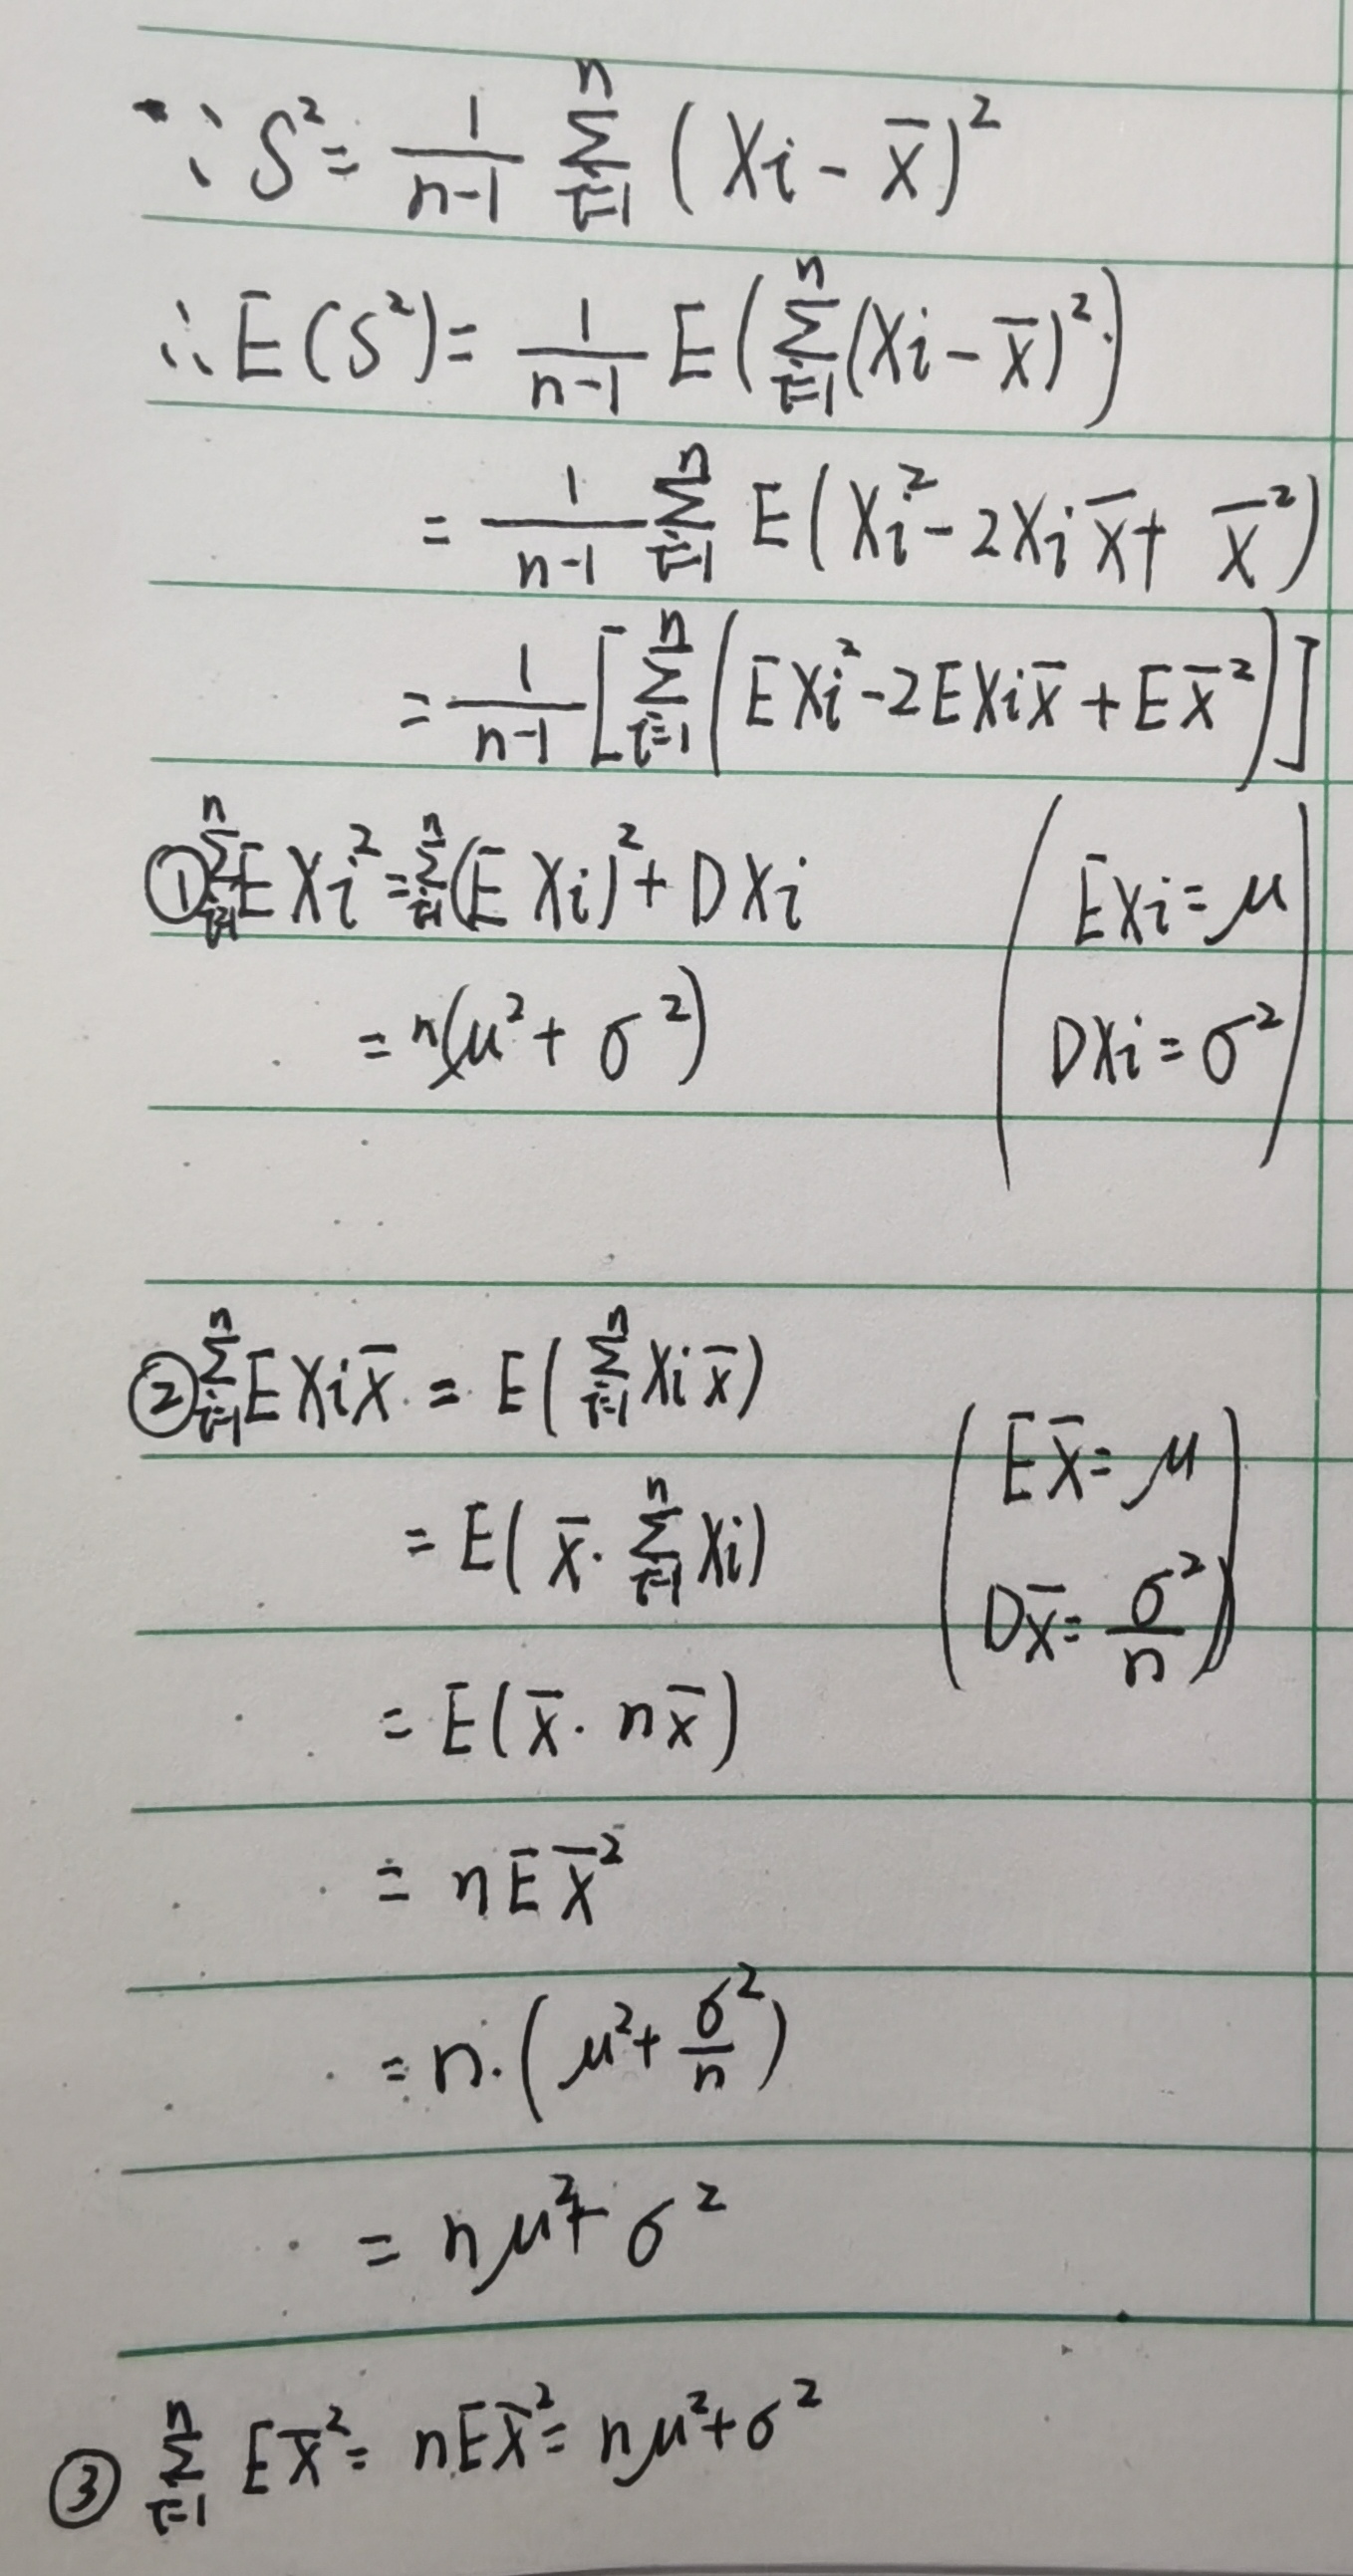 ∵ S² = 1/(n-1) ∑_{i=1}^{n} (Xi - X̄)²
∴ E(S²) = 1/(n-1) E(∑_{i=1}^{n} (Xi - X̄)²)
= 1/(n-1) ∑_{i=1}^{n} E(Xi² - 2XiX̄ + X̄²)
= 1/(n-1) [∑_{i=1}^{n} (EXi² - 2EXiX̄ + EX̄²)]
① ∑_{i=1}^{n} EXi² = ∑_{i=1}^{n} (EXi)² + DXi
(EXi = μ
= n(μ² + σ²)
DXi = σ²)
② ∑_{i=1}^{n} EXiX̄ = E(∑_{i=1}^{n} XiX̄)
(EX̄ = μ
= E(X̄ · ∑_{i=1}^{n} Xi)
DX̄ = σ²/n)
= E(X̄ · nX̄)
= nEX̄²
= n·(μ² + σ²/n)
= nμ² + σ²
③ ∑_{i=1}^{n} EX̄² = nEX̄² = nμ² + σ²